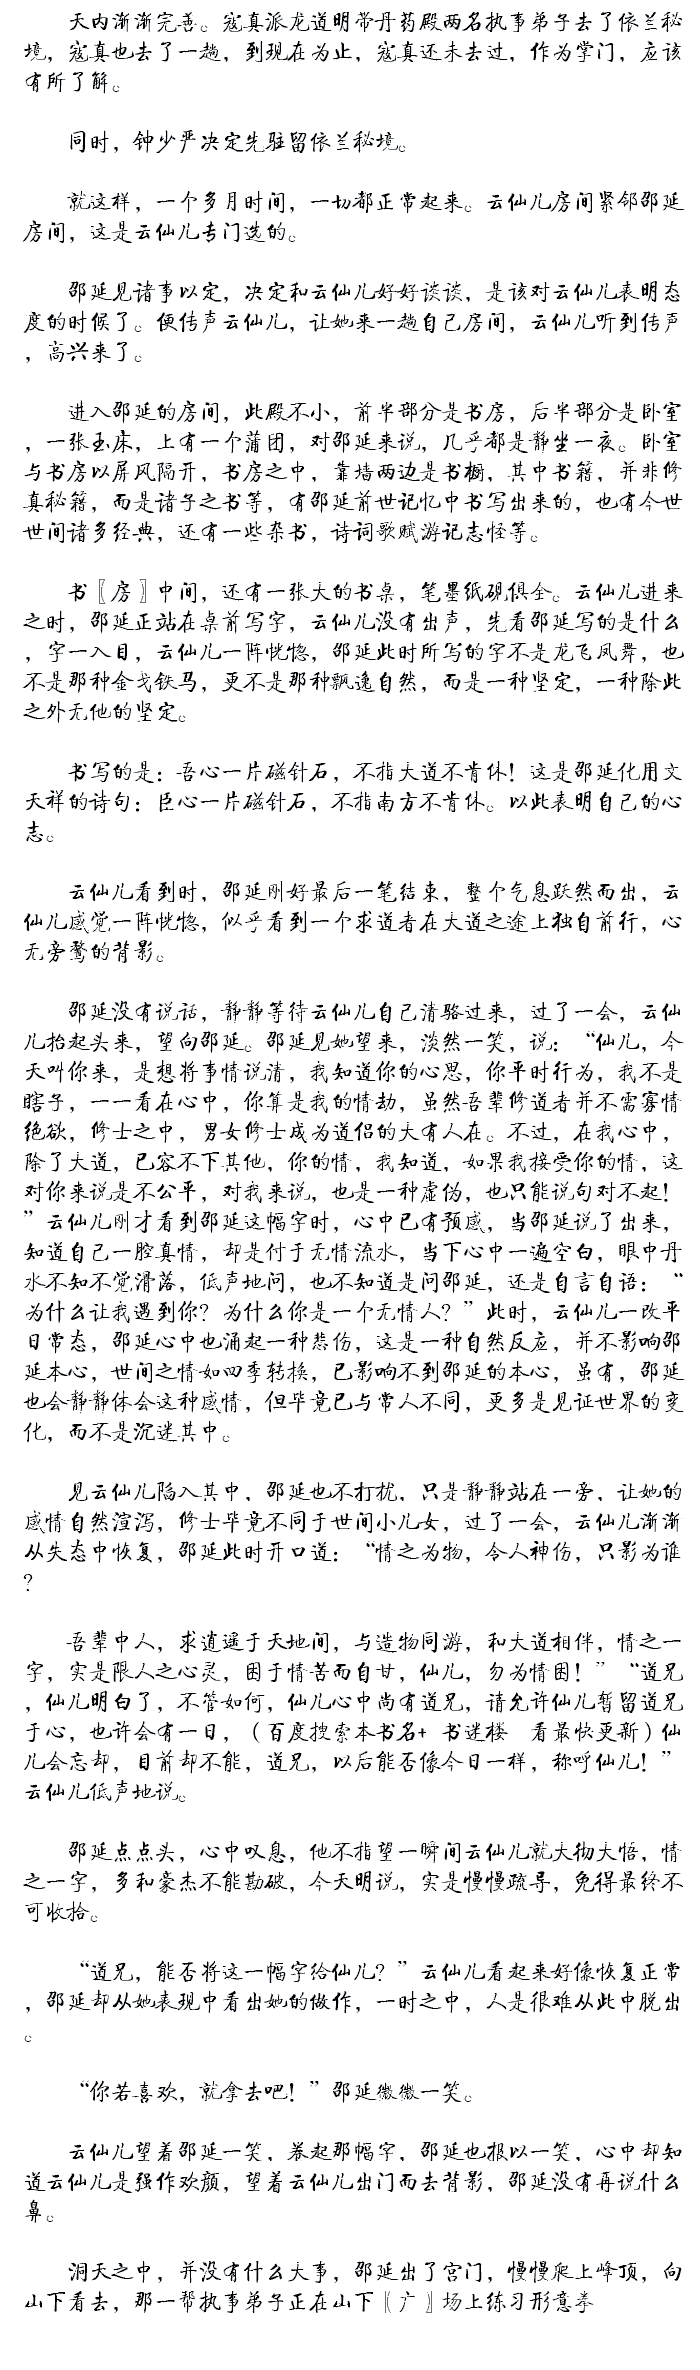 天内渐渐完善。寇真派龙道明带丹药殿两名执事弟子去了依兰秘
境，寇真也去了一趟，到现在为止，寇真还未去过，作为掌门，应该
有所了解。
同时，钟少严决定先驻留依兰秘境。
就这样，一个多月时间，一切都正常起来。云仙儿房间紧邻邵延
房间，这是云仙儿专门选的。
邵延见诸事以定，决定和云仙儿好好谈谈，是该对云仙儿表明态
度的时候了。便传声云仙儿，让她来一趟自己房间，云仙儿听到传声
，高兴来了。
进入邵延的房间，此殿不小，前半部分是书房，后半部分是卧室
，一张玉床，上有一个蒲团，对邵延来说，几乎都是静坐一夜。卧室
与书房以屏风隔开，书房之中，靠墙两边是书橱，其中书籍，并非修
真秘籍，而是诸子之书等，有邵延前世记忆中书写出来的，也有今世
世间诸多经典，还有一些杂书，诗词歌赋游记志怪等。
书〖房〗中间，还有一张大的书桌，笔墨纸砚俱全。云仙儿进来
之时，邵延正站在桌前写字，云仙儿没有出声，先看邵延写的是什么
，字一入目，云仙儿一阵恍惚，邵延此时所写的字不是龙飞凤舞，也
不是那种金戈铁马，更不是那种飘逸自然，而是一种坚定，一种除此
之外无他的坚定。
书写的是：吾心一片磁针石，不指大道不肯休！这是邵延化用文
天祥的诗句：臣心一片磁针石，不指南方不肯休。以此表明自己的心
志。
云仙儿看到时，邵延刚好最后一笔结束，整个气息跃然而出，云
仙儿感觉一阵恍惚，似乎看到一个求道者在大道之途上独自前行，心
无旁鹜的背影。
邵延没有说话，静静等待云仙儿自己清骆过来，过了一会，云仙
儿抬起头来，望向邵延。邵延见她望来，淡然一笑，说：“仙儿，今
天叫你来，是想将事情说清，我知道你的心思，你平时行为，我不是
瞎子，一一看在心中，你算是我的情劫，虽然吾辈修道者并不需寡情
绝欲，修士之中，男女修士成为道侣的大有人在。不过，在我心中，
除了大道，已容不下其他，你的情，我知道，如果我接受你的情，这
对你来说是不公平，对我来说，也是一种虚伪，也只能说句对不起！
”云仙儿刚才看到邵延这幅字时，心中已有预感，当邵延说了出来，
知道自己一腔真情，却是付于无情流水，当下心中一遍空白，眼中丹
水不知不觉滑落，低声地问，也不知道是问邵延，还是自言自语：“
为什么让我遇到你？为什么你是一个无情人？”此时，云仙儿一改平
日常态，邵延心中也涌起一种悲伤，这是一种自然反应，并不影响邵
延本心，世间之情如四季转换，已影响不到邵延的本心，虽有，邵延
也会静静体会这种感情，但毕竟已与常人不同，更多是见证世界的变
化，而不是沉迷其中。
见云仙儿陷入其中，邵延也不打扰，只是静静站在一旁，让她的
感情自然渲泻，修士毕竟不同于世间小儿女，过了一会，云仙儿渐渐
从失态中恢复，邵延此时开口道：“情之为物，令人神伤，只影为谁
？
吾辈中人，求逍遥于天地间，与造物同游，和大道相伴，情之一
字，实是限人之心灵，困于情苦而自甘，仙儿，勿为情困！”“道兄
，仙儿明白了，不管如何，仙儿心中尚有道兄，请允许仙儿暂留道兄
于心，也许会有一日，（百度搜索本书名+ 书迷楼 看最快更新）仙
儿会忘却，目前却不能，道兄，以后能否像今日一样，称呼仙儿！”
云仙儿低声地说。
邵延点点头，心中叹息，他不指望一瞬间云仙儿就大彻大悟，情
之一字，多和豪杰不能勘破，今天明说，实是慢慢疏导，免得最终不
可收拾。
“道兄，能否将这一幅字给仙儿？”云仙儿看起来好像恢复正常
，邵延却从她表现中看出她的做作，一时之中，人是很难从此中脱出
。
“你若喜欢，就拿去吧！”邵延微微一笑。
云仙儿望着邵延一笑，卷起那幅字，邵延也报以一笑，心中却知
道云仙儿是强作欢颜，望着云仙儿出门而去背影，邵延没有再说什么
鼻。
洞天之中，并没有什么大事，邵延出了宫门，慢慢爬上峰顶，向
山下看去，那一帮执事弟子正在山下〖广〗场上练习形意拳